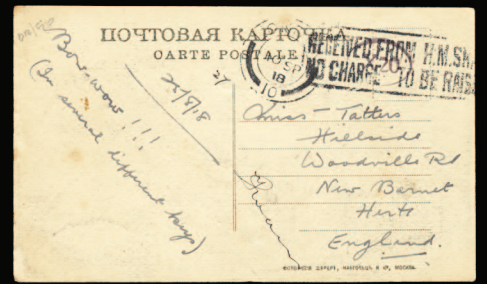 ПОЧТОВАЯ КАРТОЧКА
CARTE POSTALE
RECEIVED FROM H.M. SH
NO CHARGE TO BE RAIS
SP
18
10
Bow-wow!!!
(In several different keys)
22/8/18
Miss Tatters
Hillside
Woodville Rd
New Barnet
Herts
England.
МОСКВА.